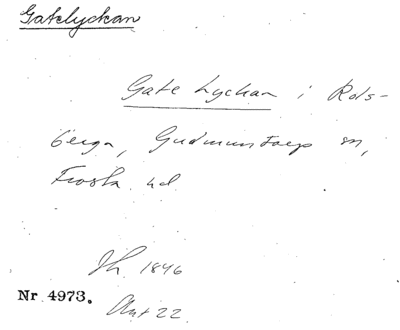 Gatelyckan
Gate Lyckan i Rols-
berga, Gudmuntorp sn,
Frosta hd
Jh. 1846
Nr 4973.
Akt 22